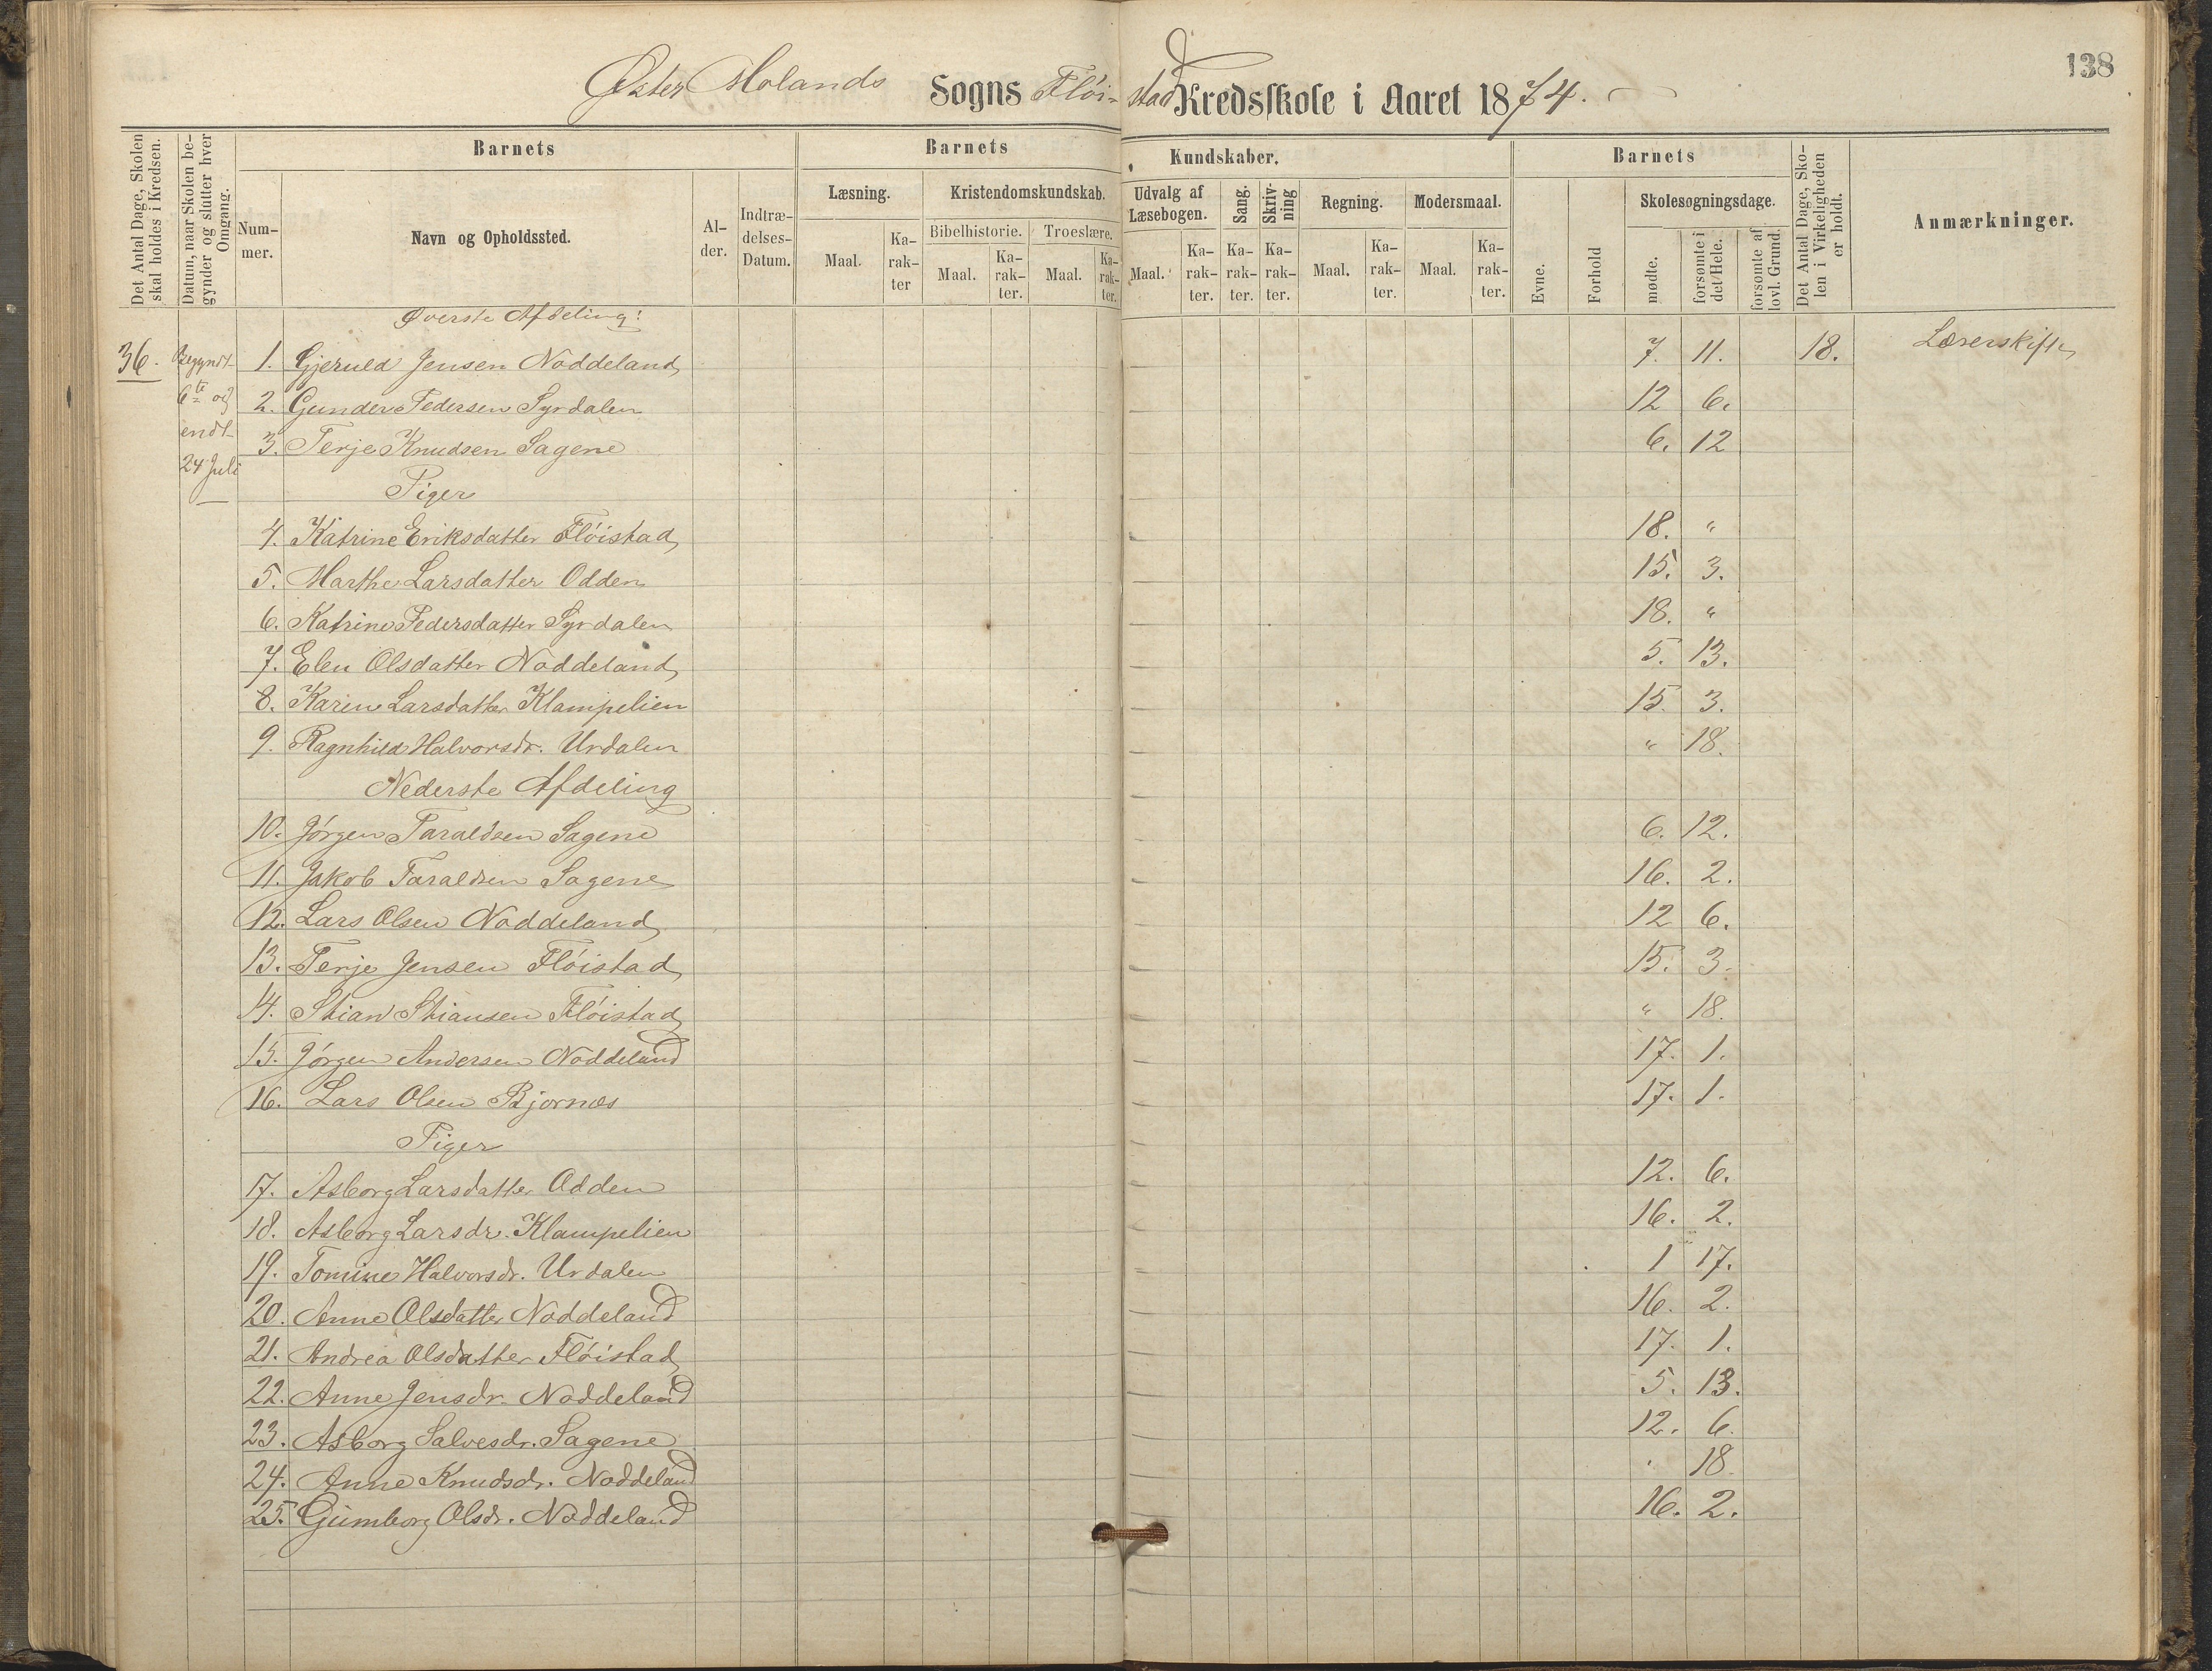 138
Øster Molands Sogns Flöistad Kredsskole i Aaret 1874.
Det Antal Dage, Skolen skal holdes i Kredsen.
Datum, naar Skolen begynder og slutter hver Omgang.
Barnets
Nummer.
Navn og Opholdssted.
Alder.
Indtrædelses-Datum.
Barnets Kundskaber.
Læsning.
Maal.
Karakter
Kristendomskundskab.
Bibelhistorie.
Maal.
Karakter.
Troeslære.
Maal.
Karakter.
Udvalg af Læsebogen.
Maal.
Karakter.
Sang.
Karakter.
Skrivning
Karakter.
Regning.
Maal.
Karakter.
Modersmaal.
Maal.
Karakter.
Barnets
Evne.
Forhold
Skolesøgningsdage.
mødte.
forsømte i det Hele.
forsømte af lovl. Grund.
Det Antal Dage, Skolen i Virkeligheden er holdt.
Anmærkninger.
Øverste Afdeling:
36. Begyndt 6te og endt 24 Juli
1. Gjeruld Jensen Noddeland 7. 11. 18. Lærerskifte
2. Gunder Pedersen Syrdalen 12 6.
3. Terje Knudsen Sagene 6. 12
Piger
4. Katrine Eriksdatter Flöistad 18. "
5. Marthe Larsdatter Odden 15. 3.
6. Katrine Pedersdatter Syrdalen 18. "
7. Elen Olsdatter Noddeland 5. 13.
8. Karen Larsdatter Klampelien 15. 3.
9. Ragnhild Halvorsdr. Urdalen " 18.
Nederste Afdeling
10. Jörgen Taraldsen Sagene 6. 12.
11. Jakob Taraldsen Sagene 16. 2.
12. Lars Olsen Noddeland 12 6.
13. Terje Jensen Flöistad 15. 3.
14. Stian Stiansen Flöistad " 18.
15. Jörgen Andersen Noddeland 17. 1.
16. Lars Olsen Bjornæs 17. 1.
Piger
17. Asborg Larsdatter Odden 12. 6.
18. Asborg Larsdr. Klampelien 16. 2.
19. Tomine Halvorsdr. Urdalen 1 17.
20. Anne Olsdatter Noddeland 16. 2.
21. Andrea Olsdatter Flöistad 17. 1.
22. Anne Jensdr. Noddeland 5. 13.
23. Asborg Salvesdr. Sagene 12. 6.
24. Anne Knudsdr. Noddeland " 18.
25. Gumborg Olsdr. Noddeland 16. 2.